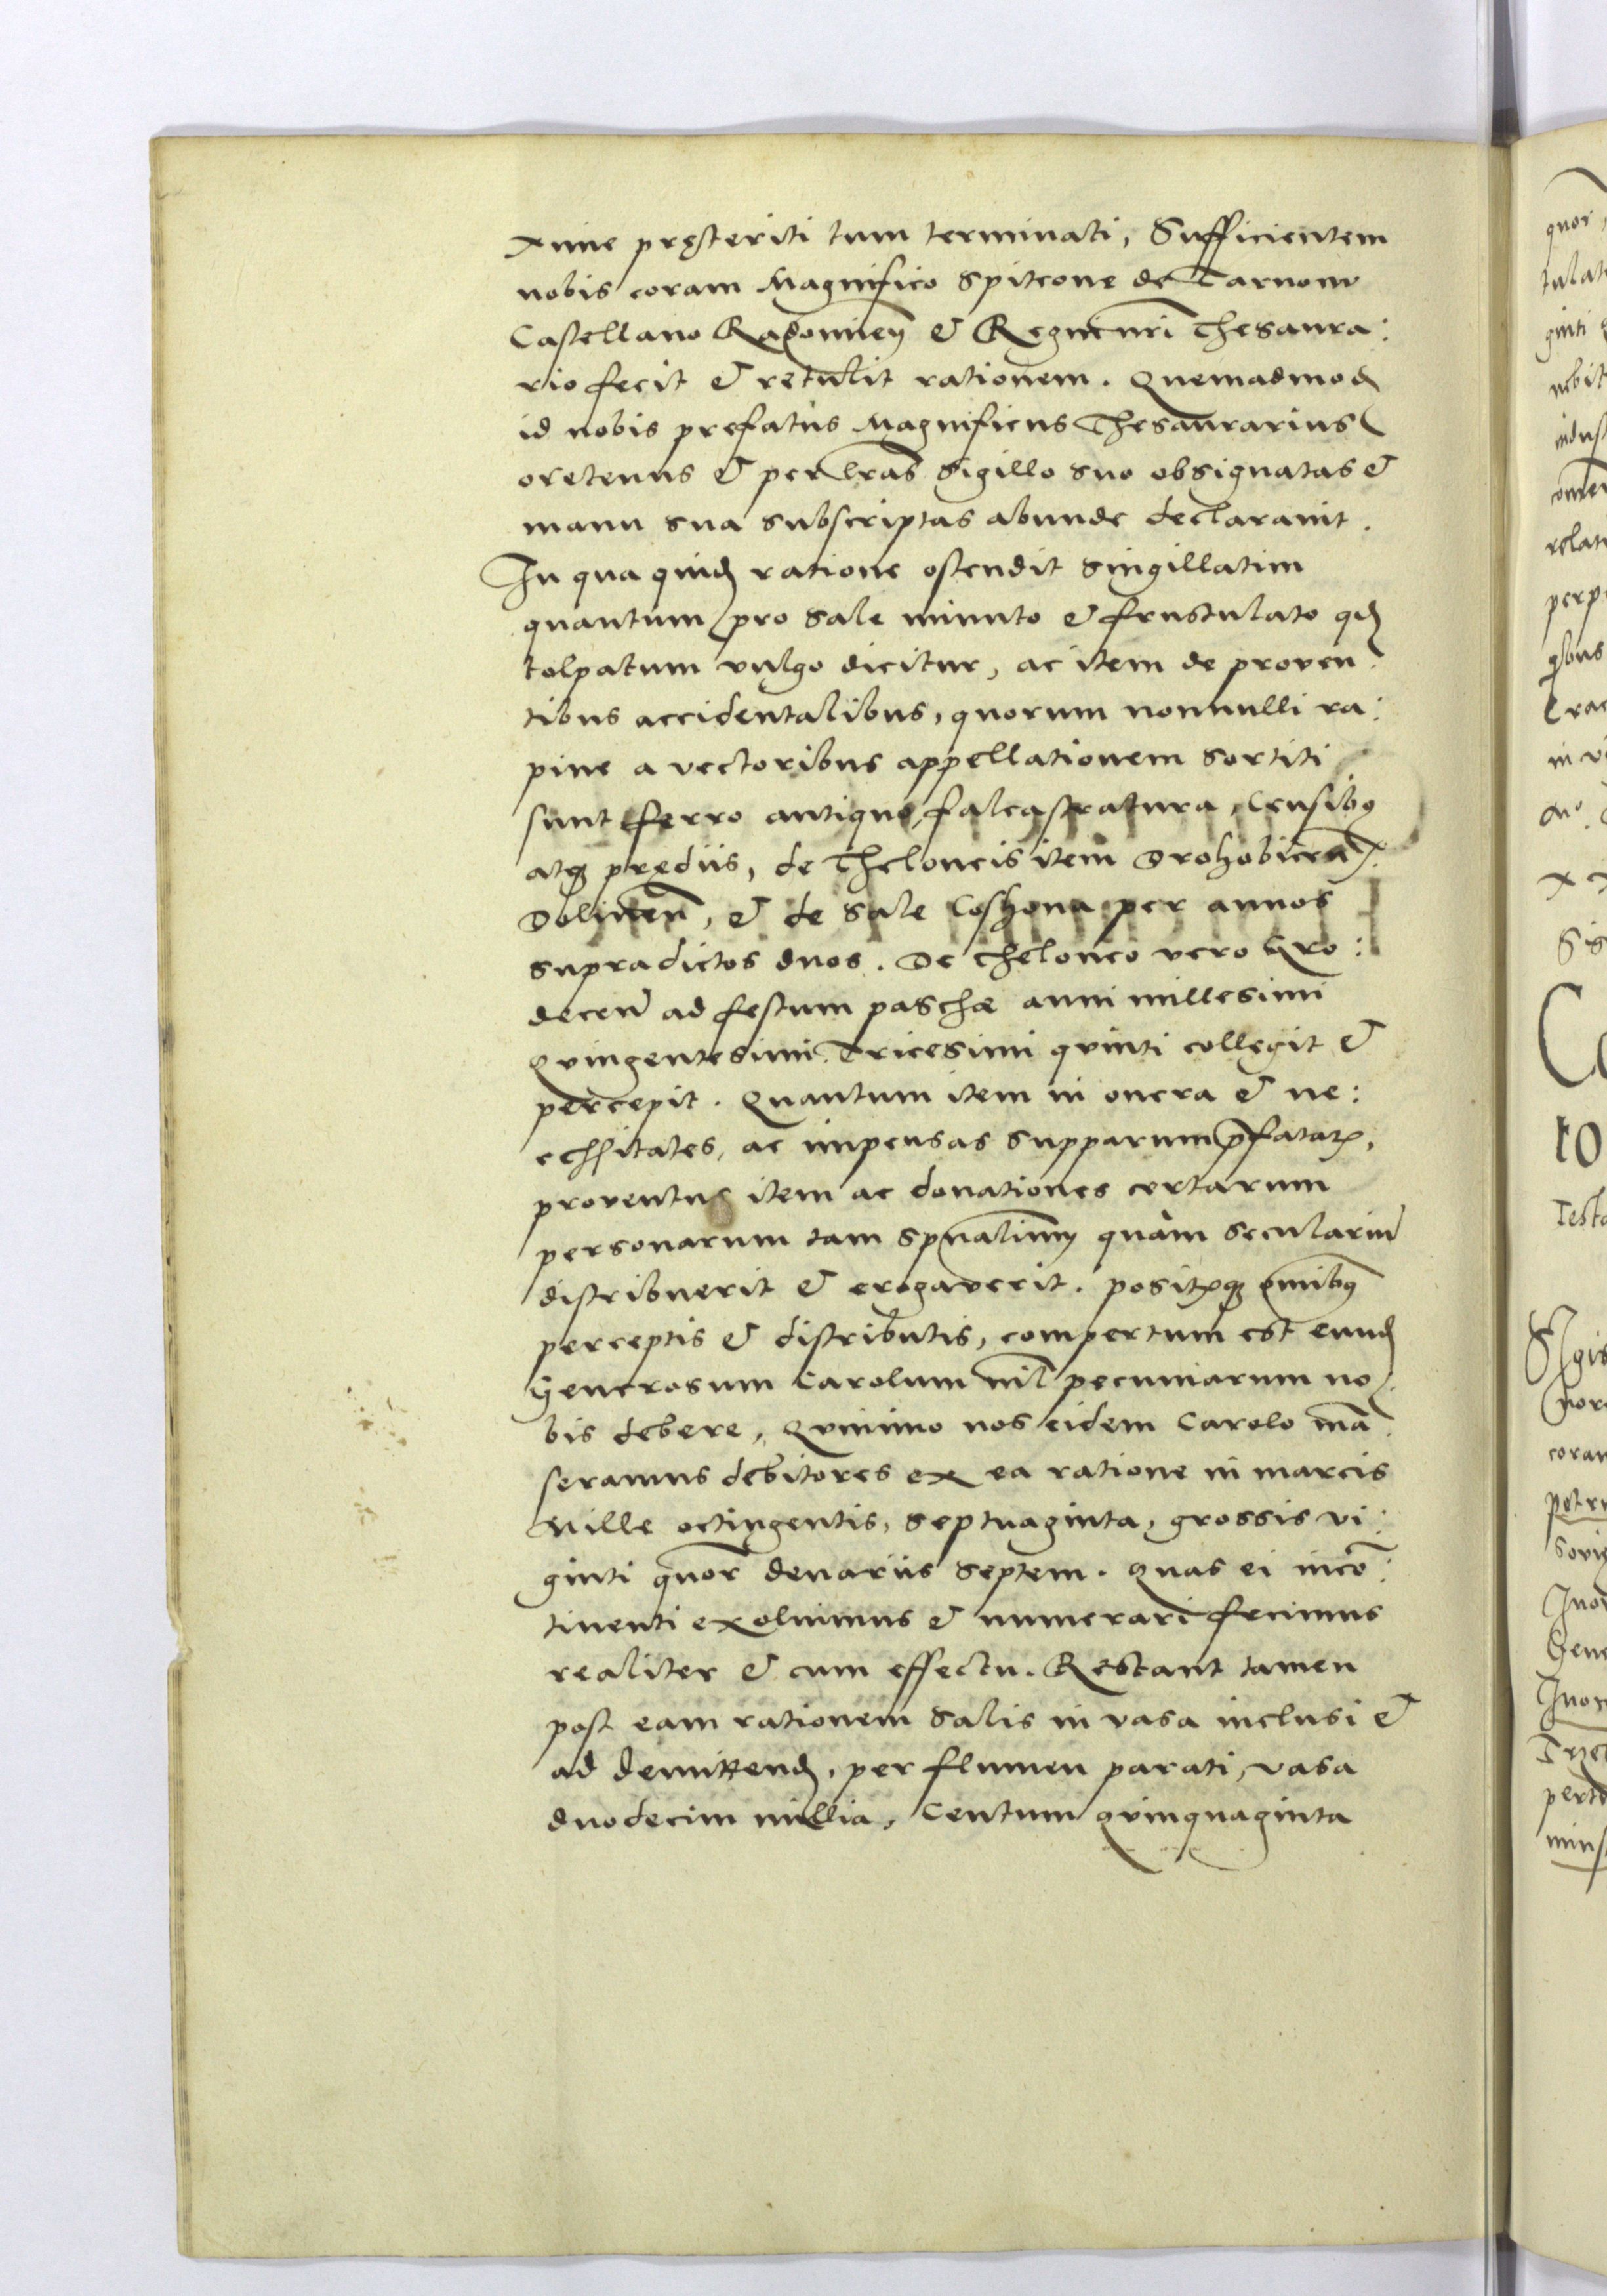 xime pręteriti tum terminati, Sufficientem
nobis coram Magnifico Spitcone de Tarnow
Castellano Radomien̄ & Regni nr̄i Thesaura:
rio fecit & retulit rationem. Quemadmod
id nobis prefatus Magnificus Thesaurarius
oretenus & per lr̄as Sigillo suo obsignatas &
manu sua subscriptas abunde declarauit.
In qua quid ratione ostendit Singillatim
quantum pro Sale minuto & frustulato qd
tolpatum vulgo dicitur, ac item de proven:
tibus accidentalibus, quorum nonnulli ra:
pine a vectoribus appellationem Sortiti
sunt ferro antiquo, falcastratura, Censibꝫ
atqꝫ prędiis, de Theloneis item Drohobicen̄
Dolinen̄, & de Sale Coshona per annos
supradictos duos. De theloneo vero Gro:
decen̄ ad festum paschæ anni millesimi
Quingentesimi Tricesimi quinti collegit &
percepit. Quantum item in onera & ne:
cessitates, ac impensas Supparum p̄fatarꝫ,
proventus item ac donationes certarum
personarum tam Sp̄ualium quàm Secularium̄
distribuerit & erogaverit. positisqꝫ om̄ibꝫ
perceptis & distributis, compertum est eund
Generosum Carolum nil̄ pecuniarum no:
bis debere, Quinimo nos eidem Carolo mā:
seramus debitores ex ea ratione in marcis
Mille octingentis, Septuaginta, grossis vi:
ginti quor̄ denariis Septem. Quas ei incō:
tinenti exoluimus & numerari fecimus
realiter & cum effectu. Restant tamen
post eam rationem Salis in vasa inclusi &
ad demittend, per flumen parati, vasa
duodecim millia, Centum quinquaginta
quor
tulat
ginti
nebit
indust
relat
perp
in v
x
Sig
C
to
Testa
Sigis
nor
coram
petru
Gene
perti
mins